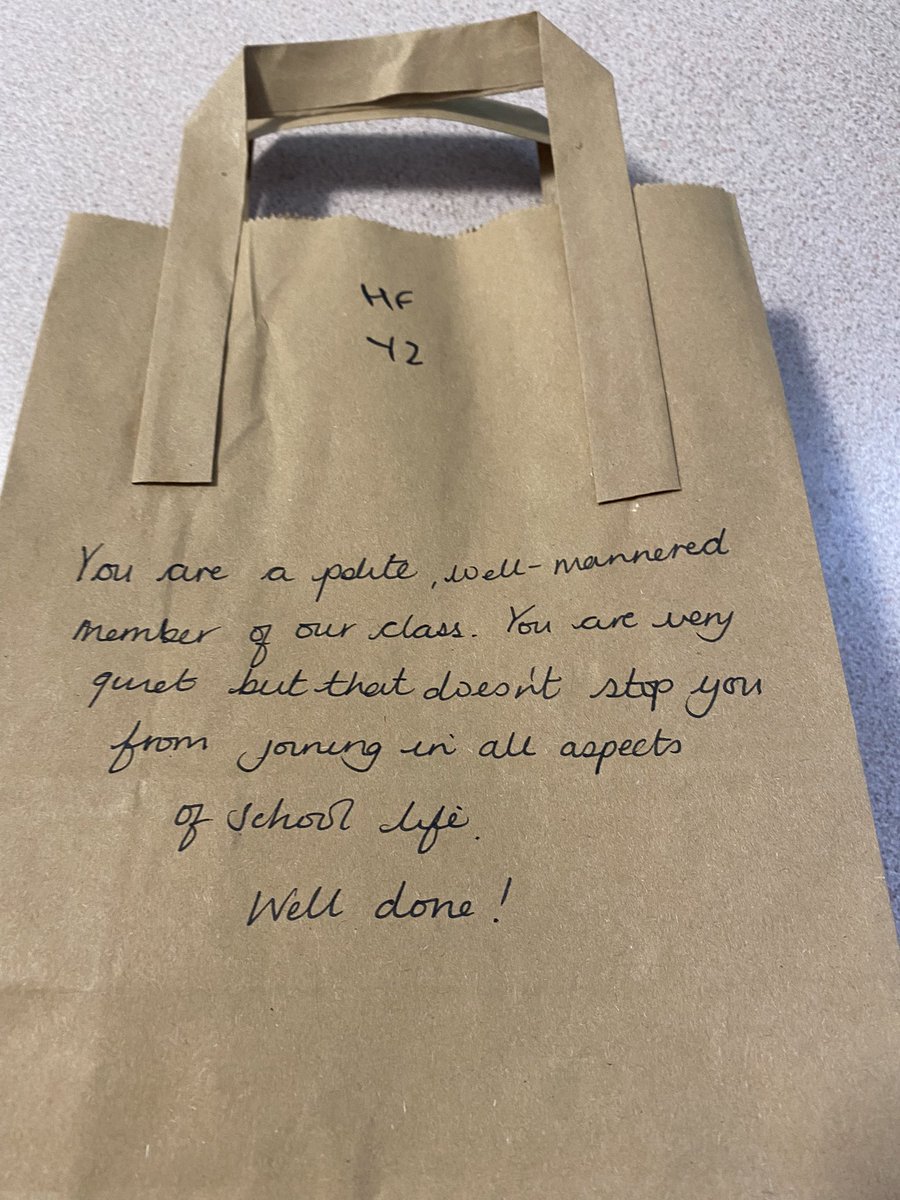 HF
Y2
You are a polite, well-mannered
member of our class. You are very
quiet but that doesn't stop you
from joining in all aspects
of school life.
Well done!